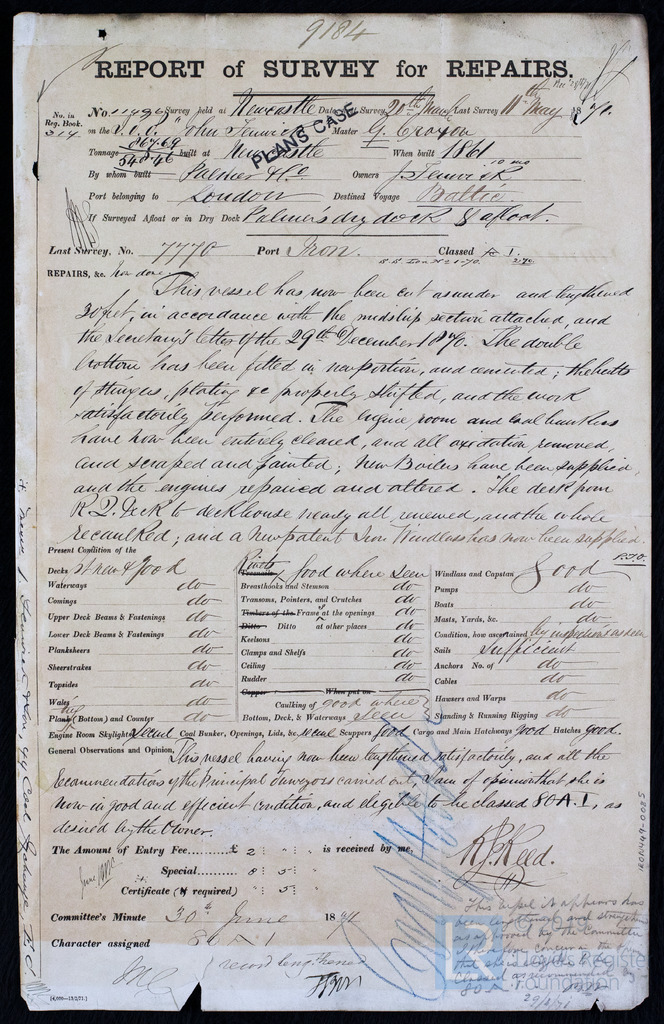 9184
REPORT of SURVEY for REPAIRS.
No. in Reg. Book. 314
No. 11496 Survey held at Newcastle Date of Survey 20th March Last Survey 11th May 1871
on the "John Fenwick" Master G. Croxon
PLANS CASE
Tonnage 548.46 built at Newcastle When built 1861 10 mo
By whom built Palmer & Co Owners J. Fenwick
Port belonging to London Destined Voyage Baltic
If Surveyed Afloat or in Dry Dock Palmers dry dock & afloat.
Last Survey, No. 7770 Port Iron. Classed A 1
REPAIRS, &c. now done
This vessel has now been cut asunder and lengthened
30 feet, in accordance with the midship section attached, and
the Secretary's letter of the 29th December 1870. The double
bottom has been fitted in new portion, and cemented; the butts
of stringers, plating &c properly shifted, and the work
satisfactorily performed. The engine room and coal bunkers
have now been entirely cleared, and all oxidation removed,
and scraped and painted; New Boilers have been supplied,
and the engines repaired and altered. The deck from
R. Q. Deck to deckhouse nearly all renewed, and the whole
recaulked; and a new patent Iron Windlass has now been supplied.
P.T.O.
Present Condition of the
Decks pt new & good
Waterways do
Comings do
Upper Deck Beams & Fastenings do
Lower Deck Beams & Fastenings do
Planksheers do
Sheerstrakes do
Topsides do
Wales do
Plating (Bottom) and Counter do
Rivets Treenails good where seen
Breasthooks and Stemson do
Transoms, Pointers, and Crutches do
Timbers of the Frame at the openings do
Ditto Ditto at other places do
Keelsons do
Clamps and Shelfs do
Ceiling do
Rudder do
Copper When put on
Caulking of good where
Bottom, Deck, & Waterways seen
Windlass and Capstan Good
Pumps do
Boats do
Masts, Yards, &c. do
Condition, how ascertained by inspection as seen
Sails Sufficient
Anchors No. of do
Cables do
Hawsers and Warps do
Standing & Running Rigging do
Engine Room Skylights secure Coal Bunker, Openings, Lids, &c. secure Scuppers good Cargo and Main Hatchways good Hatches good.
General Observations and Opinion, This vessel having now been lengthened satisfactorily, and all the
recommendations of the Principal Surveyors carried out, I am of opinion that she is
now in good and efficient condition, and eligible to be classed 80 A. 1, as
desired by the Owner.
The Amount of Entry Fee......... £ 2 : " : " is received by me,
Special........ 8 : 5 :
Certificate (if required) " : 5 :
R. J. Reed.
Committee's Minute 30th June 1871
Character assigned 80 A 1
record lengthened
This vessel it appears has
been lengthened and strengthened
as approved by the Committee
80 A. 1.
29/6/71
[4,000—13/2/71.]
IRON449-0085
LR
Lloyd's Register
Foundation